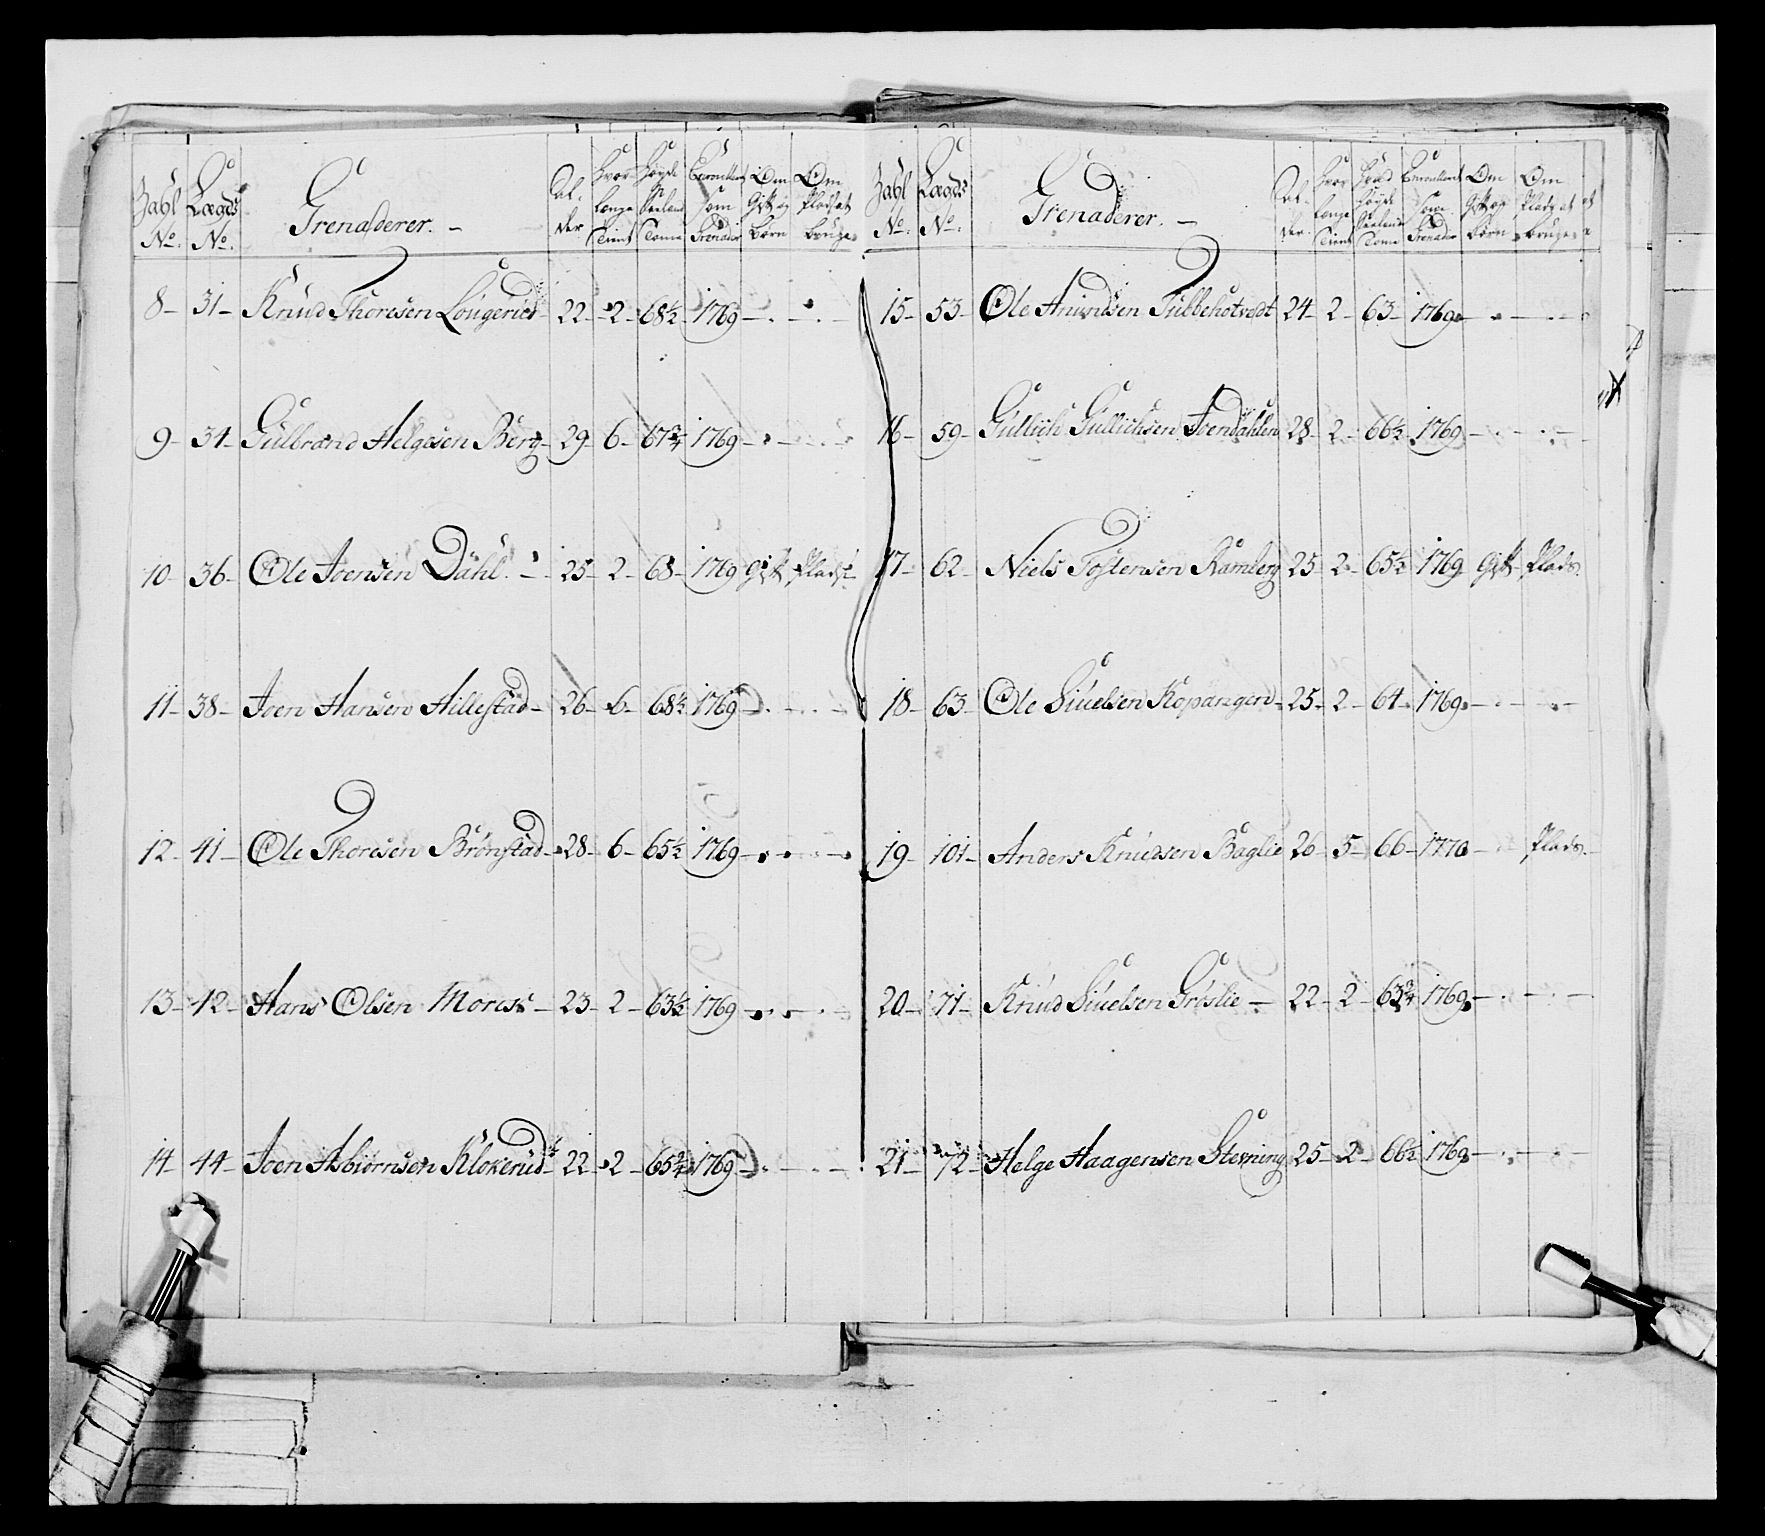 Tahl No. Lægds No. Grenaderer. Al- der Hvor lenge Tient Høyde Seeland Tome Enroullerit som Grenader Om Gift og børn Om Pladsat bruge
8 - 31 - Knud Thoresen Lougerud 22 - 2 - 68½ 1769
9 - 34 - Gulbrand Helgesen Berg - 29 - 6 - 67¾ 1769
10 - 36 - Ole Joensen Dahl. - 25 - 2 - 68 - 1769 Gift Plads
11 - 38 - Joen Hansen Hillestad - 26 - 6 - 68½ 1769
12 - 41 - Ole Thoresen Brønstad - 28 - 6 - 65½ 1769
13 - 42 - Hans Olsen Morck - 23 - 2 - 63½ 1769
14 - 44 - Joen Asbiørnsen Klokerud - 22 - 2 - 65¾ 1769
Tahl No. Lægds No. Grenaderer. - Al- der. Hvor lenge Tient Høyde Seeland Tome Enroullerit som Grenader Om Gift og børn Om Plads at bruge
15 - 53 - Ole Tulbehotvedt 24 - 2 - 63 - 1769
16 - 59 - Gullich Gullichsen Joendahlen 28 - 2 - 66½ 1769
17 - 62 - Niels Tostensen Ramberg 25 - 2 - 65½ 1769 Gift Plads.
18 - 63 - Ole Siuelsen Kopangen - 25 - 2 - 64 - 1769
19 - 101 - Anders Knudsen Baglie 26 - 5 - 66 - 1770 - Plads.
20 - 71 - Knud Siuelsen Grøslie - 22 - 2 - 63¾ 1769
21 - 72 - Helge Haagensen Sterning 25 - 2 - 66½ 1769